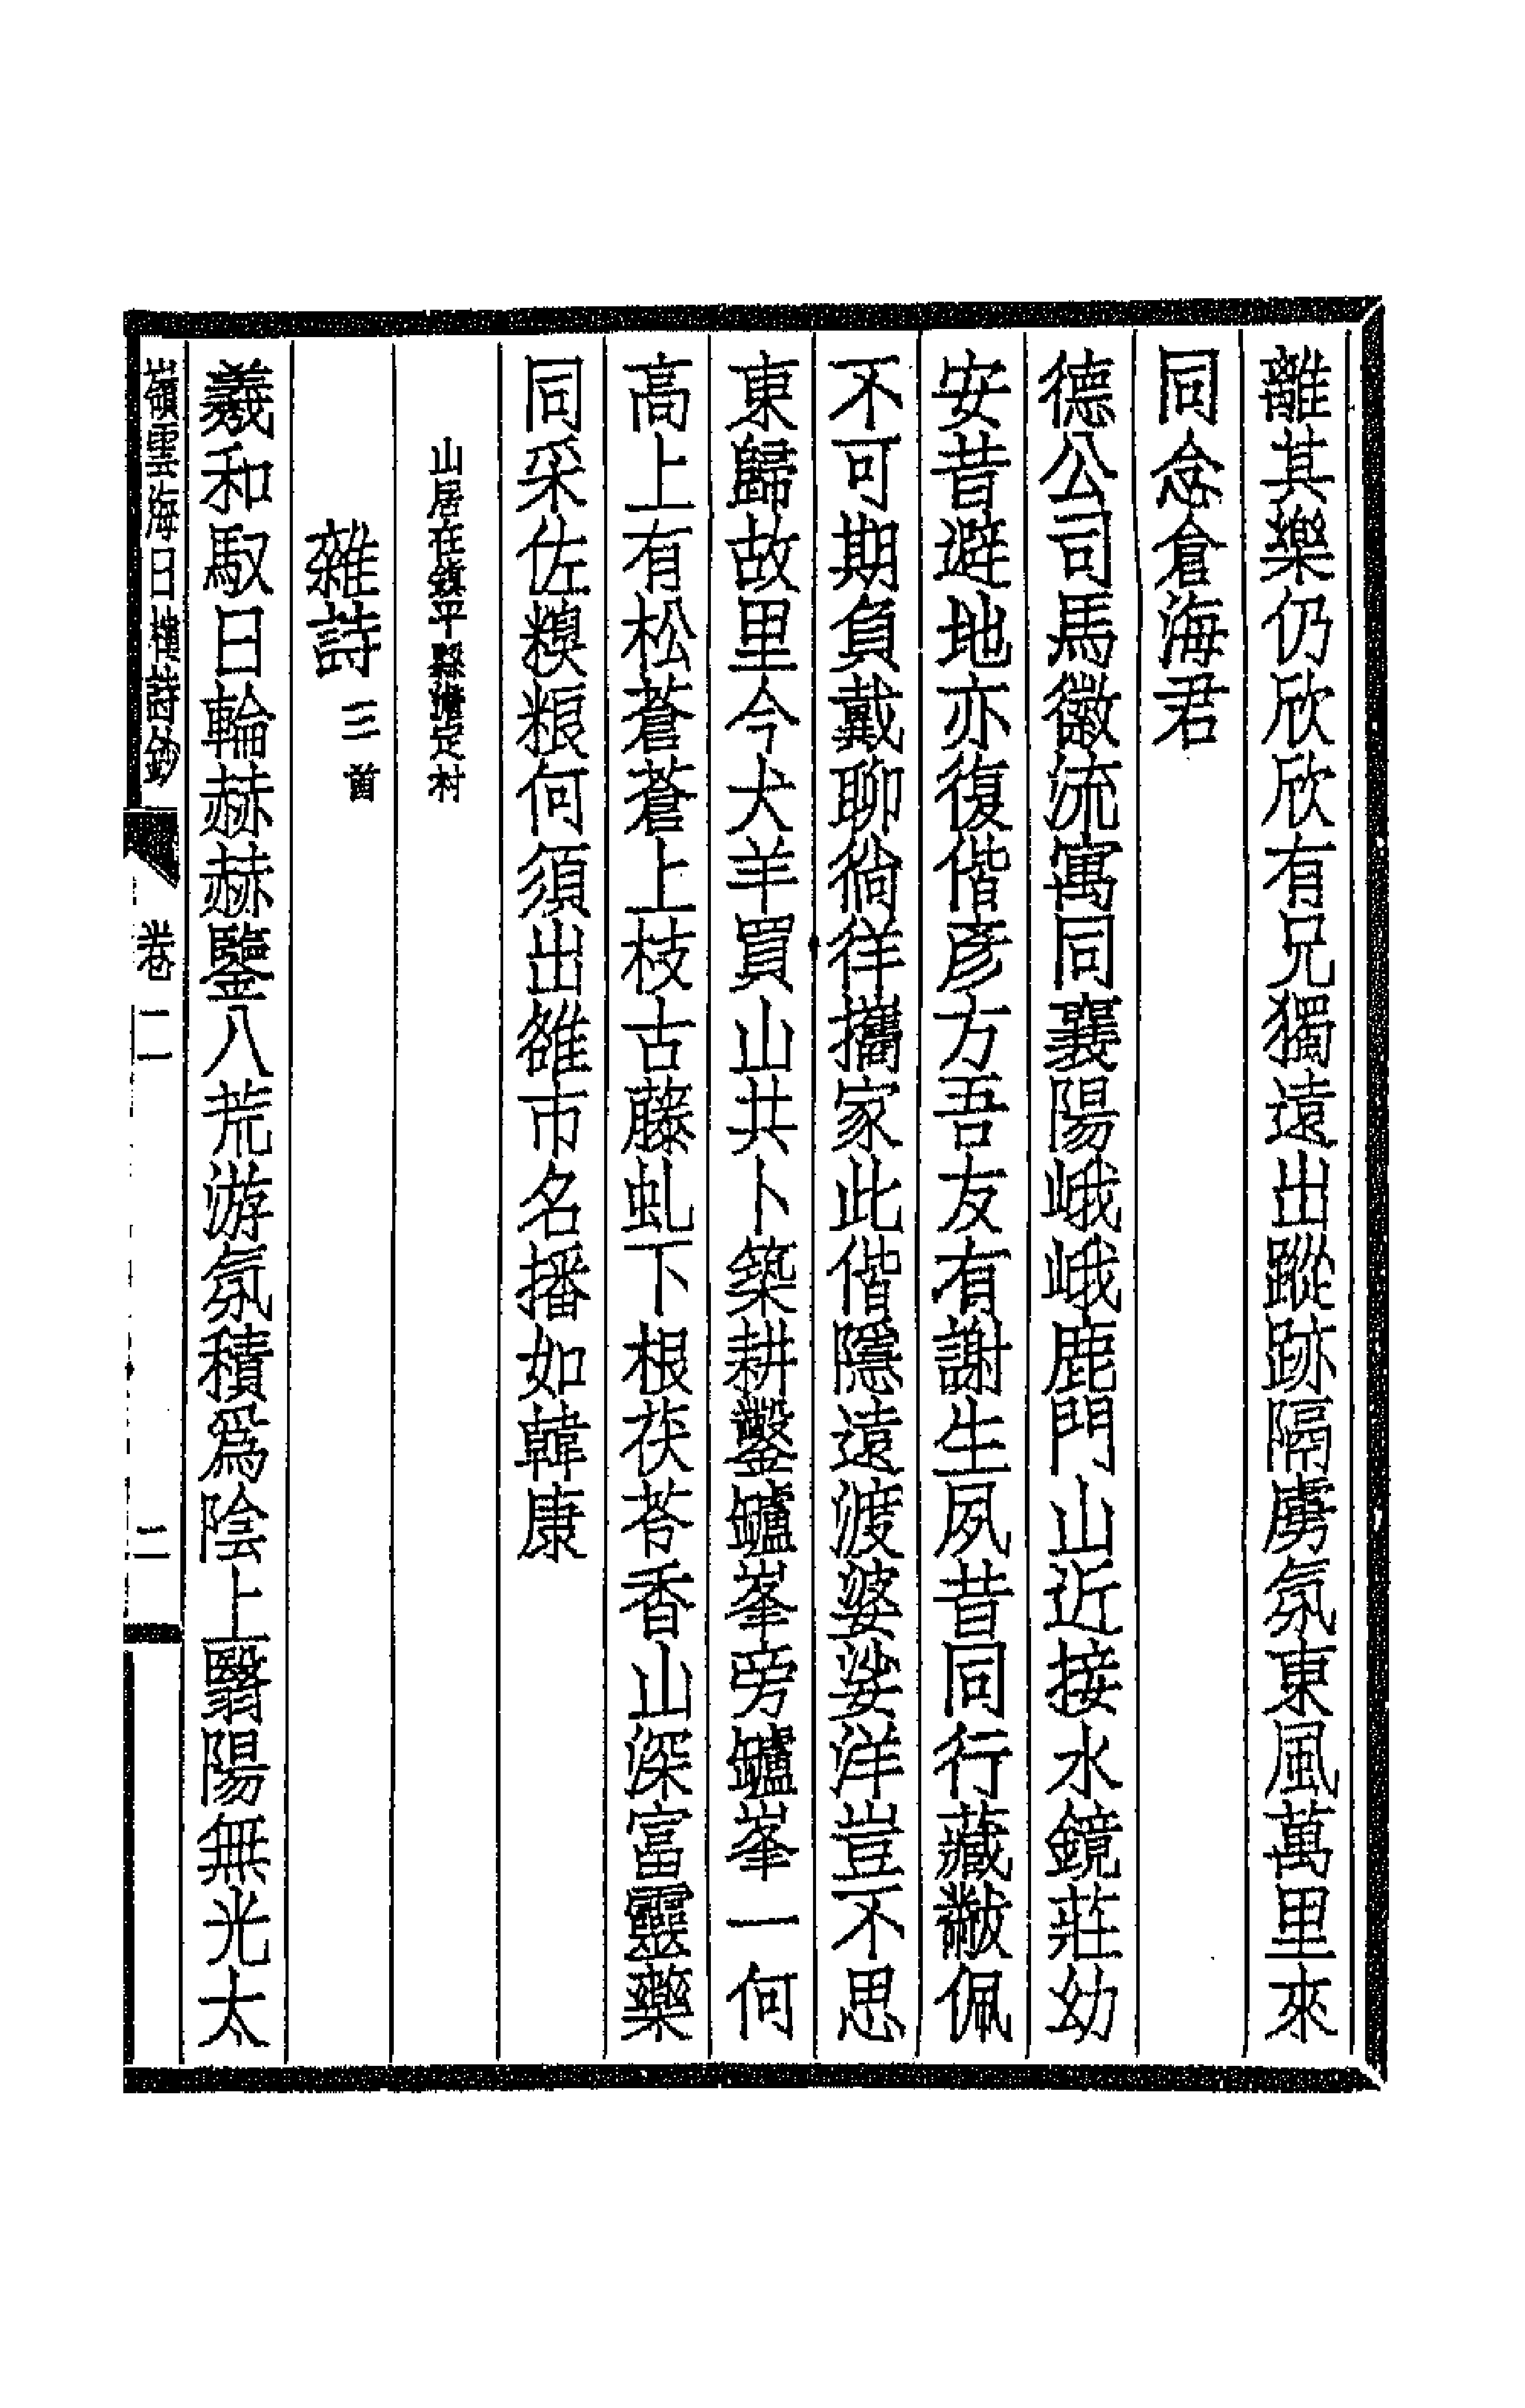 離其樂仍欣欣有兄獨遠出蹤跡隔虜氛東風萬里來
同念倉海君
德公司馬徽流寓同襄陽峨峨鹿門山近接水鏡莊幼
安昔避地亦復偕彥方吾友有謝生夙昔同行藏黻佩
不可期負戴聊徜徉攜家此偕隱遠渡婆娑洋豈不思
東歸故里今犬羊買山共卜築耕鑿鑪峯旁鑪峯一何
高上有松蒼蒼上枝古藤虬下根茯苓香山深富靈藥
同采佐糗粻何須出雒市名播如韓康
山居在鎮平縣澹定村
雜詩三首
羲和馭日輪赫赫鑒八荒游氛積爲陰上翳陽無光太
嶺雲海日樓詩鈔 卷二 二